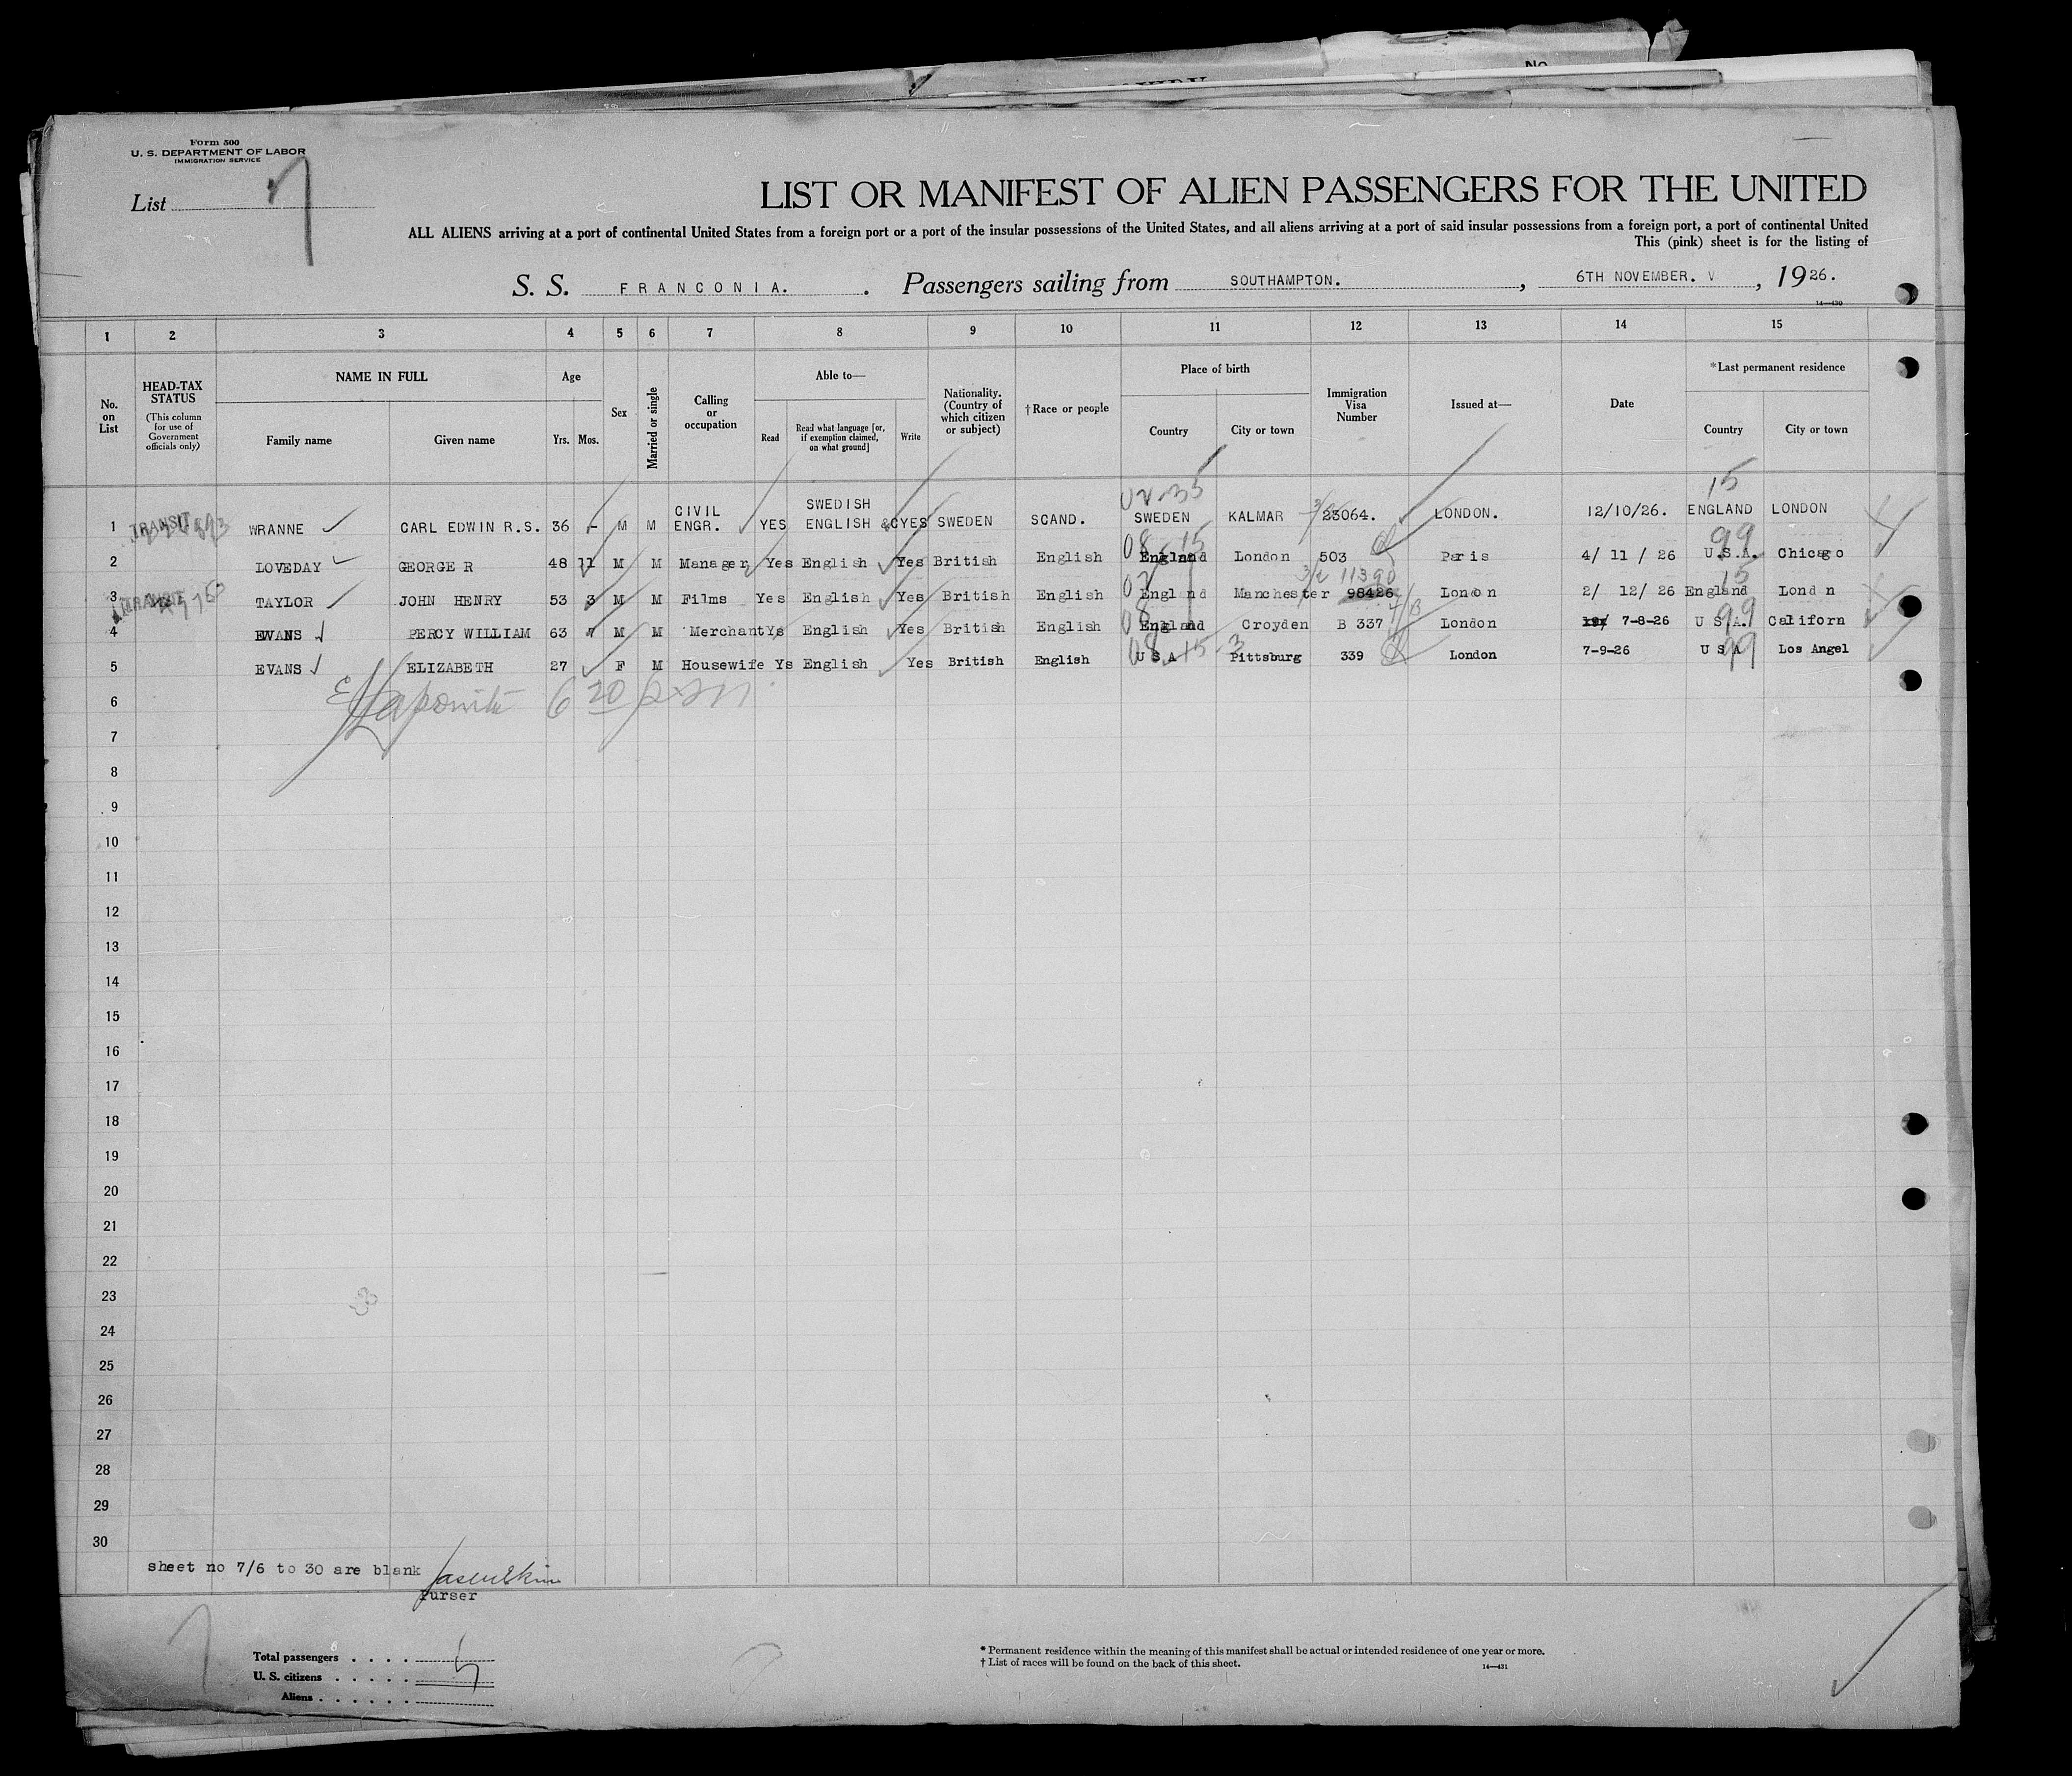 No
Form 500
U. S. DEPARTMENT OF LABOR
IMMIGRATION SERVICE
List 7
LIST OR MANIFEST OF ALIEN PASSENGERS FOR THE UNITED
ALL ALIENS arriving at a port of continental United States from a foreign port or a port of the insular possessions of the United States, and all aliens arriving at a port of said insular possessions from a foreign port, a port of continental United
This (pink) sheet is for the listing of
S. S. FRANCONIA. Passengers sailing from SOUTHAMPTON. , 6TH NOVEMBER. , 1926.
14—430
1 2 3 4 5 6 7 8 9 10 11 12 13 14 15
No. on List
HEAD-TAX STATUS
(This column for use of Government officials only)
NAME IN FULL
Family name Given name
Age
Yrs. Mos.
Sex
Married or single
Calling or occupation
Able to—
Read
Read what language [or, if exemption claimed, on what ground]
Write
Nationality. (Country of which citizen or subject)
† Race or people
Place of birth
Country City or town
Immigration Visa Number
Issued at—
Date
* Last permanent residence
Country City or town
15
1 TRANSIT WRANNE CARL EDWIN R.S. 36 - M M CIVIL ENGR. YES SWEDISH ENGLISH & YES SWEDEN SCAND. SWEDEN KALMAR 23064. LONDON. 12/10/26. ENGLAND LONDON
99
2 LOVEDAY GEORGE R 48 11 M M Manager Yes English Yes British English England London 503 Paris 4/ 11 / 26 U.S.A. Chicago
15
3 TRANSIT TAYLOR JOHN HENRY 53 3 M M Films Yes English Yes British English England Manchester 98426 11390 London 2/ 12/ 26 England Lond n
99
4 EVANS PERCY WILLIAM 63 7 M M Merchant Ys English Yes British English England Croyden B 337 London 7-8-26 U S.A. Californ
99
5 EVANS ELIZABETH 27 F M Housewife Ys English Yes British English U S A Pittsburg 339 London 7-9-26 U S A Los Angel
6 6 20 pm
7
8
9
10
11
12
13
14
15
16
17
18
19
20
21
22
23
24
25
26
27
28
29
30
sheet no 7/6 to 30 are blank
Purser
Total passengers . . . .
U. S. citizens . . . . . 5
Aliens . . . . . .
* Permanent residence within the meaning of this manifest shall be actual or intended residence of one year or more.
† List of races will be found on the back of this sheet.
14—431